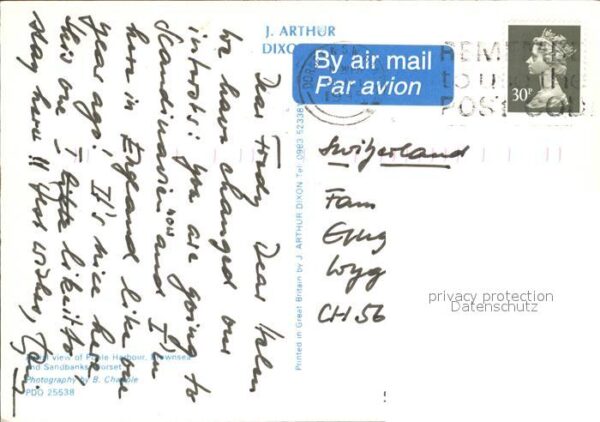 J. ARTHUR
DIXON
By air mail
Par avion
REMEMBER
to use the
POST CODE
30P
Dear Fredy Dear Helen
We have changed our
interests: you are going to
Scandinavien now and I'm
here in England like one
year ago. It's nice here,
this one - I like it to
stay here!! Best wishes,
Switzerland
Fam
CH 56
privacy protection
Datenschutz
Printed in Great Britain by J. ARTHUR DIXON Tel: 0983 523381
view of Poole Harbour, Brownsea
and Sandbanks, Dorset
Photography by B. Charople
PDO 25538